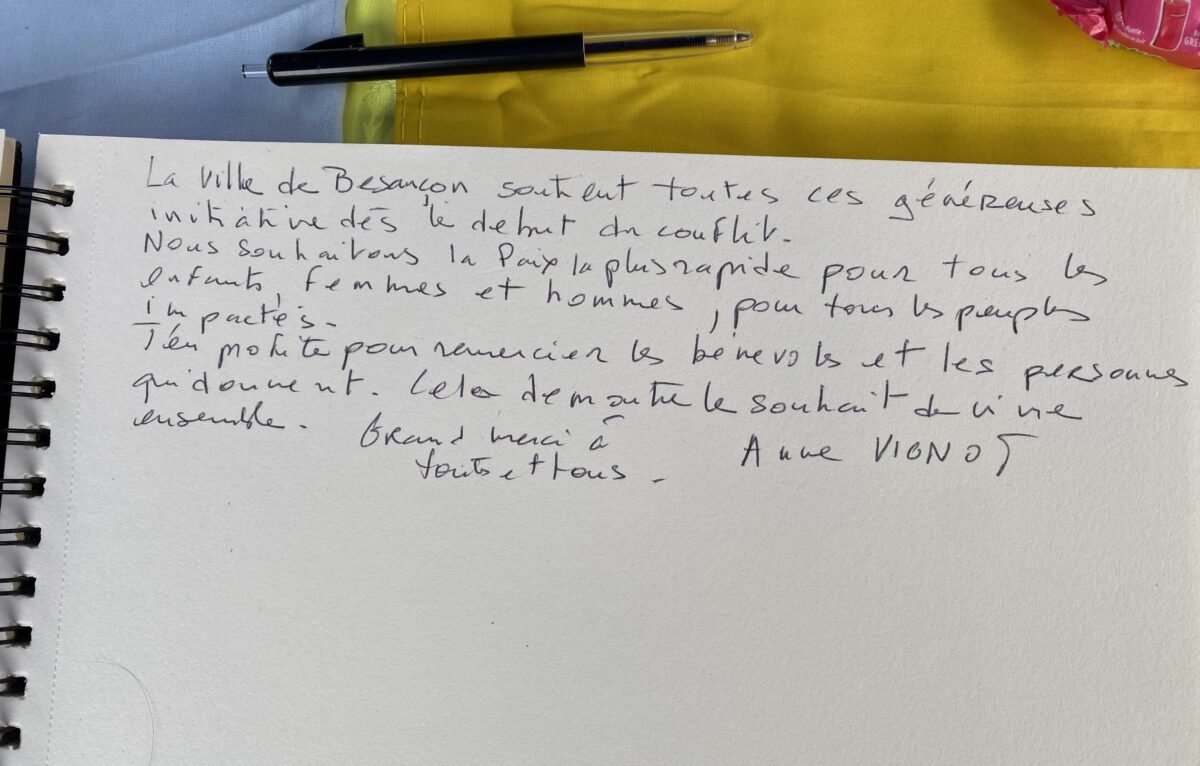 La ville de Besançon soutient toutes ces généreuses
initiative dès le début du conflit.
Nous souhaitons la Paix la plus rapide pour tous les
enfants, femmes et hommes, pour tous les peuples
impactés.
J'en profite pour remercier les bénévoles et les personnes
qui donnent. Cela démontre le souhait de vivre
ensemble. Grand merci à
toutes et tous.
Anne VIGNOT